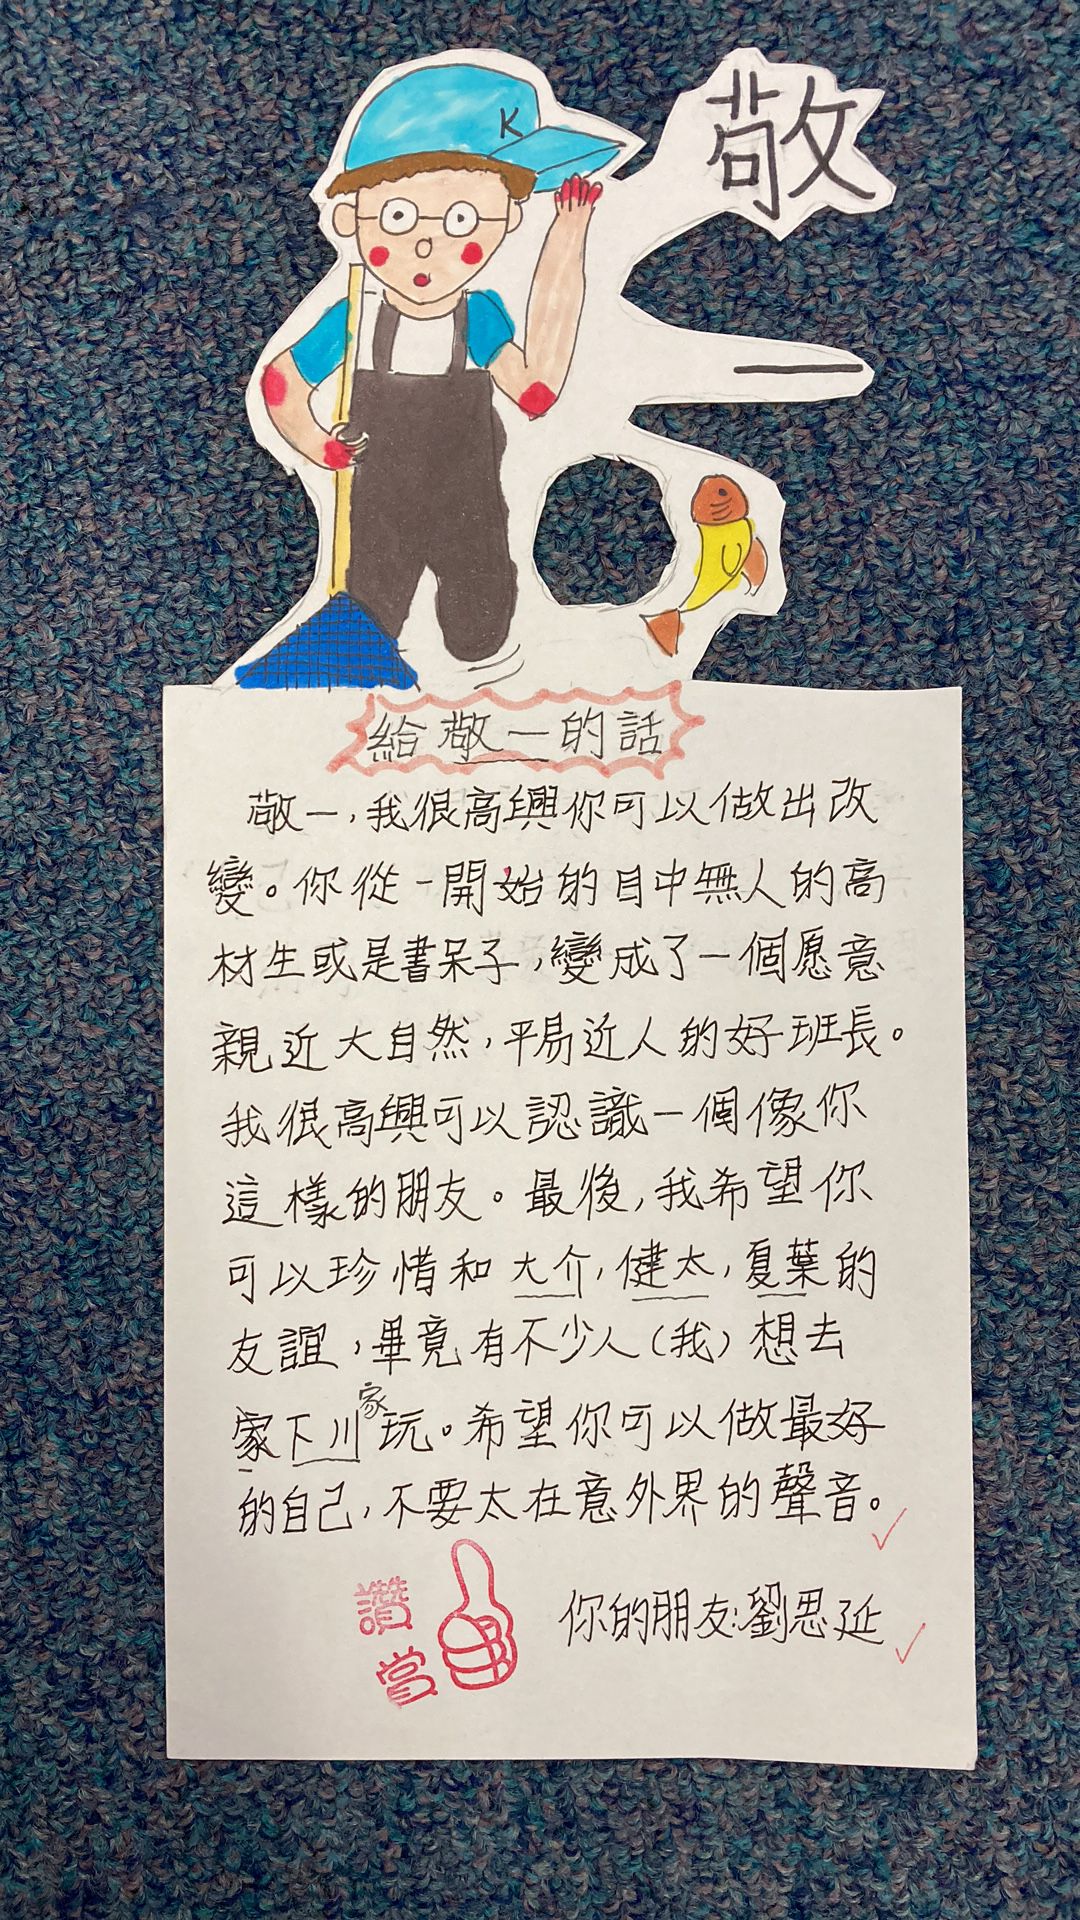 K
敬
一
給敬一的話
敬一,我很高興你可以做出改
變。你從一開始的目中無人的高
材生或是書呆子,變成了一個愿意
親近大自然,平易近人的好班長。
我很高興可以認識一個像你
這樣的朋友。最後,我希望你
可以珍惜和大介,健太,夏葉的
友誼,畢竟有不少人(我)想去
家下川家玩。希望你可以做最好
的自己,不要太在意外界的聲音。
讚賞
你的朋友:劉思延